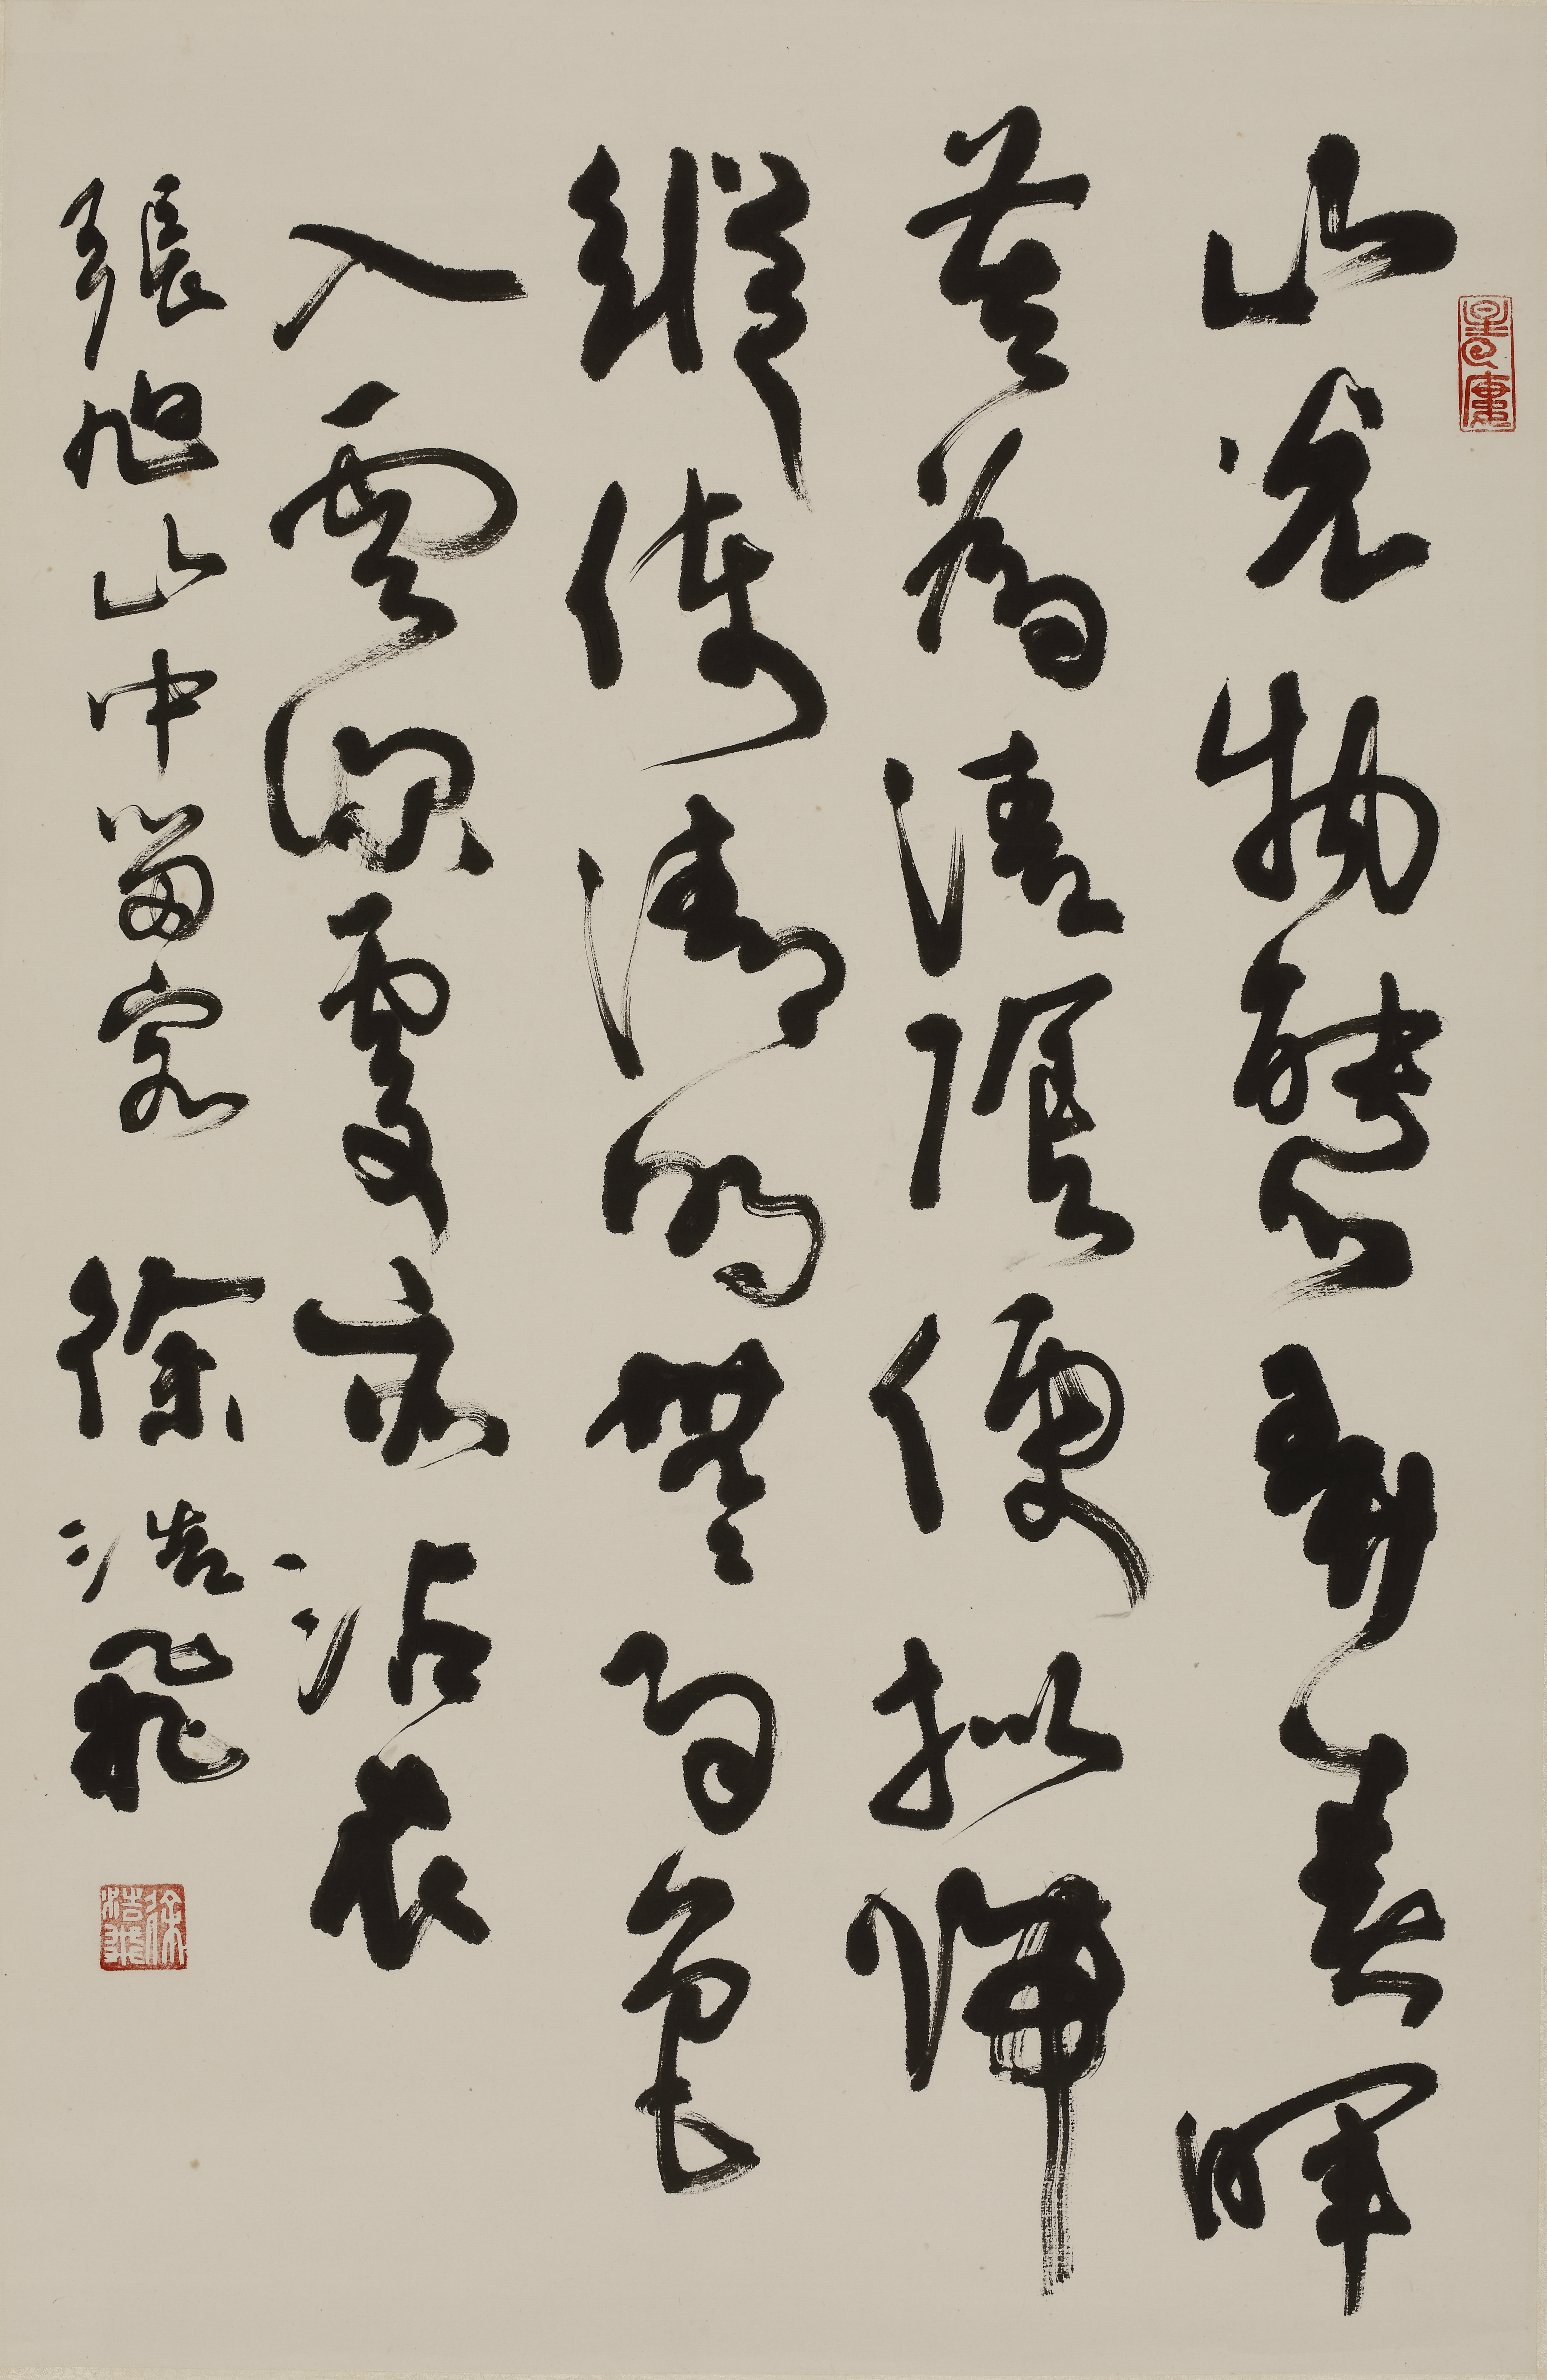 山光物態弄春暉
莫為清陰便擬歸
縱使清明無雨色
入雲深處亦沾衣
張旭山中留客 徐浩飛
徐浩飛